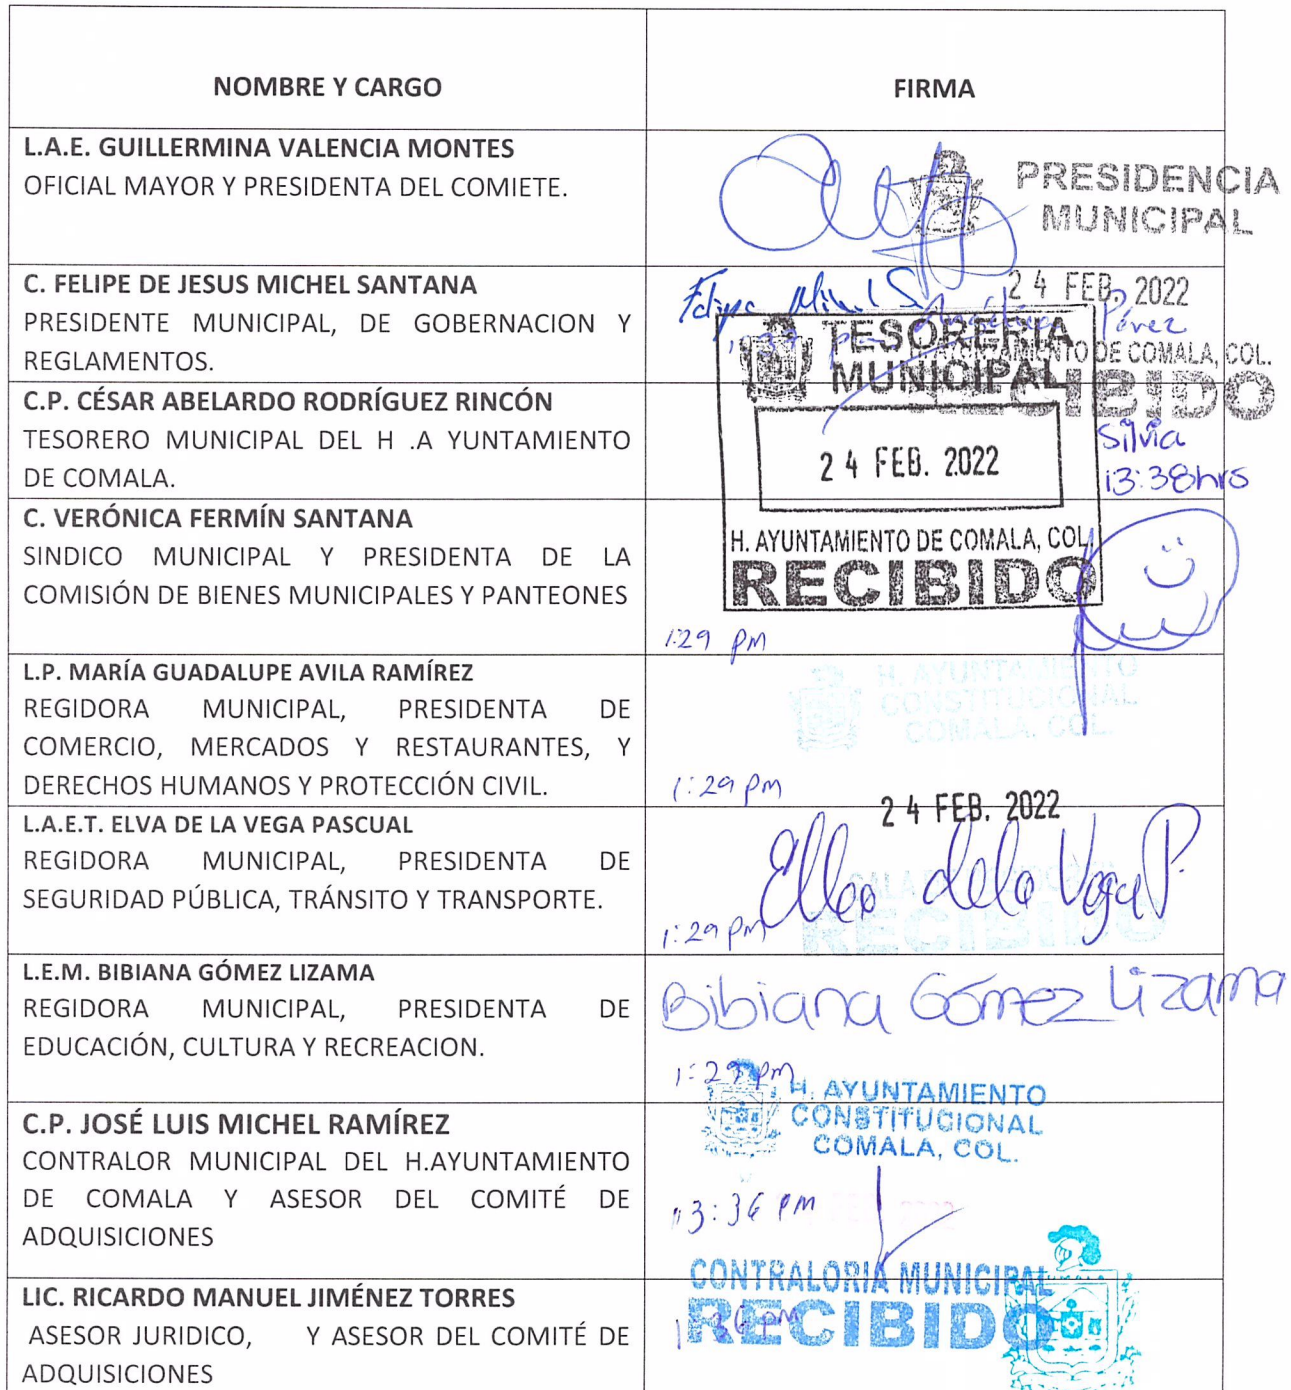 NOMBRE Y CARGO
FIRMA
L.A.E. GUILLERMINA VALENCIA MONTES
OFICIAL MAYOR Y PRESIDENTA DEL COMIETE.
PRESIDENCIA
MUNICIPAL
C. FELIPE DE JESUS MICHEL SANTANA
PRESIDENTE MUNICIPAL, DE GOBERNACION Y
REGLAMENTOS.
Felipe Mich S
24 FEB. 2022
Pérez
AYUNTAMIENTO DE COMALA, COL.
CIBIDO
Silvia
13:38hrs
C.P. CÉSAR ABELARDO RODRÍGUEZ RINCÓN
TESORERO MUNICIPAL DEL H .A YUNTAMIENTO
DE COMALA.
TESORERIA
MUNICIPAL
24 FEB. 2022
H. AYUNTAMIENTO DE COMALA, COL.
RECIBIDO
C. VERÓNICA FERMÍN SANTANA
SINDICO MUNICIPAL Y PRESIDENTA DE LA
COMISIÓN DE BIENES MUNICIPALES Y PANTEONES
1:29 pm
L.P. MARÍA GUADALUPE AVILA RAMÍREZ
REGIDORA MUNICIPAL, PRESIDENTA DE
COMERCIO, MERCADOS Y RESTAURANTES, Y
DERECHOS HUMANOS Y PROTECCIÓN CIVIL.
H. AYUNTAMIENTO
CONSTITUCIONAL
COMALA, COL.
1:29 pm
24 FEB. 2022
L.A.E.T. ELVA DE LA VEGA PASCUAL
REGIDORA MUNICIPAL, PRESIDENTA DE
SEGURIDAD PÚBLICA, TRÁNSITO Y TRANSPORTE.
Elva de la Vega P.
SALA
RECIBIDO
1:29 pm
L.E.M. BIBIANA GÓMEZ LIZAMA
REGIDORA MUNICIPAL, PRESIDENTA DE
EDUCACIÓN, CULTURA Y RECREACION.
Bibiana Gómez Lizama
1:29 pm
C.P. JOSÉ LUIS MICHEL RAMÍREZ
CONTRALOR MUNICIPAL DEL H.AYUNTAMIENTO
DE COMALA Y ASESOR DEL COMITÉ DE
ADQUISICIONES
H. AYUNTAMIENTO
CONSTITUCIONAL
COMALA, COL.
13:36 PM
CONTRALORIA MUNICIPAL
RECIBIDO
LIC. RICARDO MANUEL JIMÉNEZ TORRES
ASESOR JURIDICO, Y ASESOR DEL COMITÉ DE
ADQUISICIONES